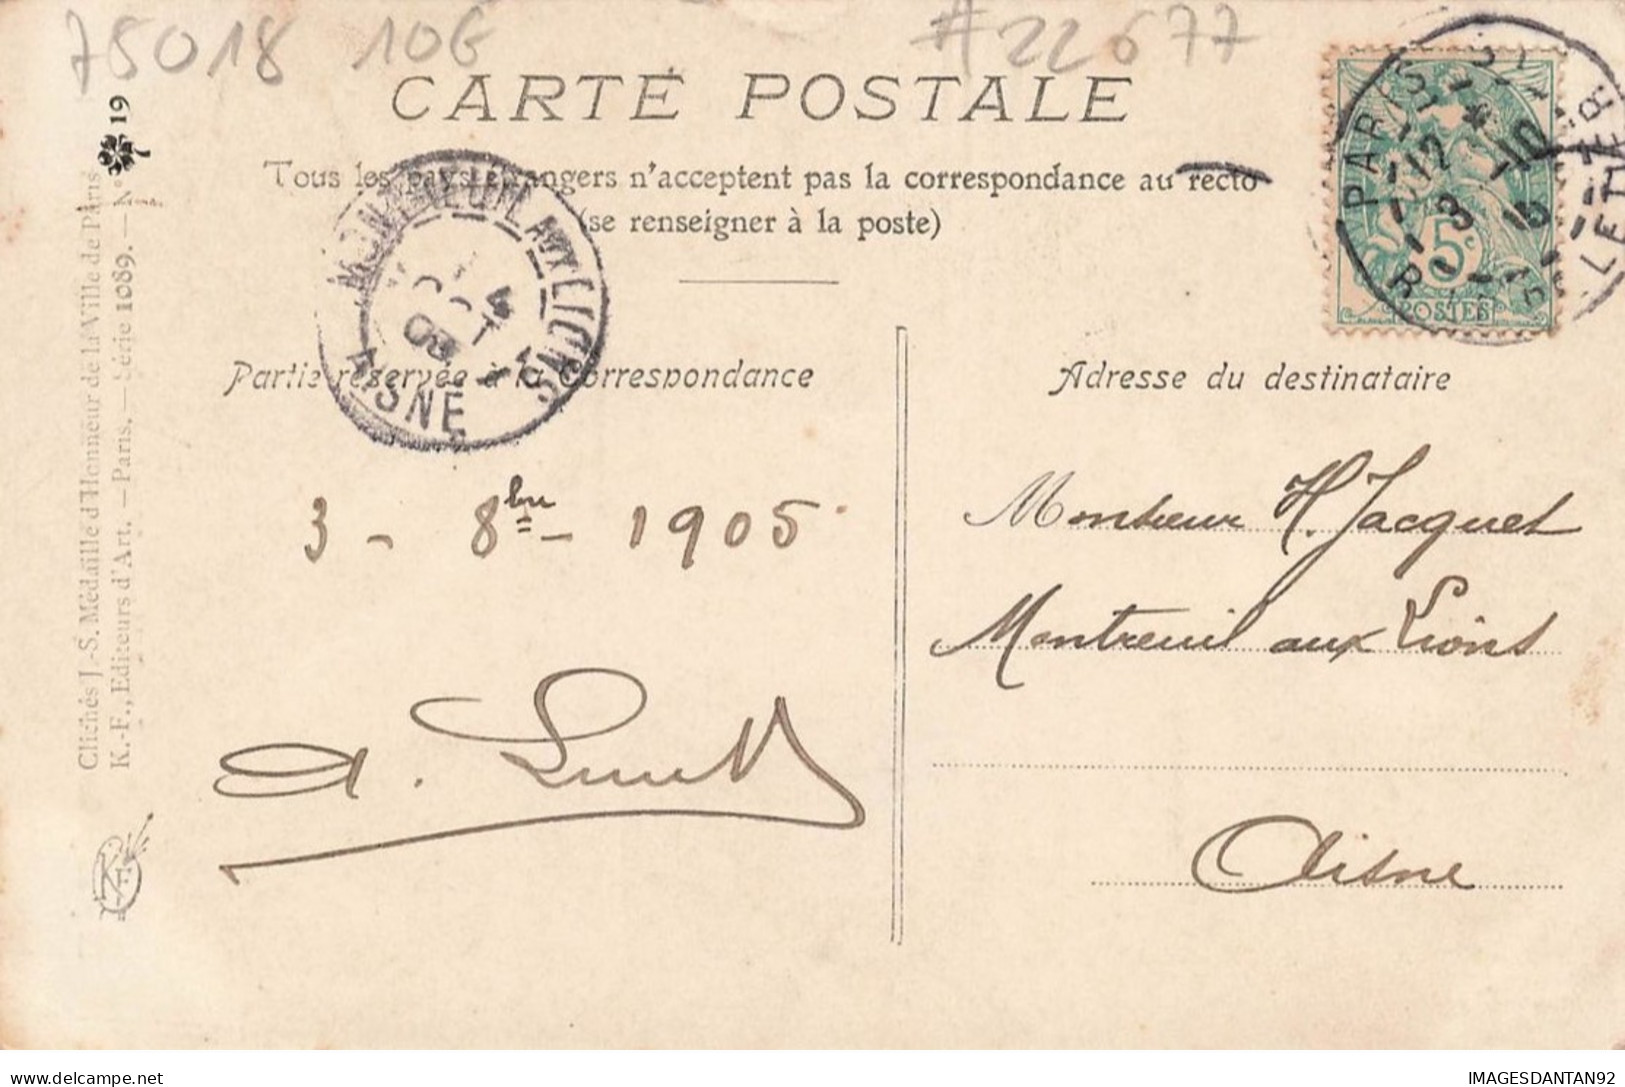 75018 10G #22677
CARTE POSTALE
Tous les pays étrangers n'acceptent pas la correspondance au recto
(se renseigner à la poste)
MONTREUIL AUX LIONS
AISNE
PARIS
5c
POSTES
Partie réservée à la Correspondance
Adresse du destinataire
3 - 8bre - 1905
Monsieur H. Jacquet
Montreuil aux Lions
Aisne
19
Clichés J.-S. Médaille d'Honneur de la Ville de Paris
K.-F., Editeurs d'Art. — Paris. — Série 1089. — N°
delcampe.net
IMAGESDANTAN92